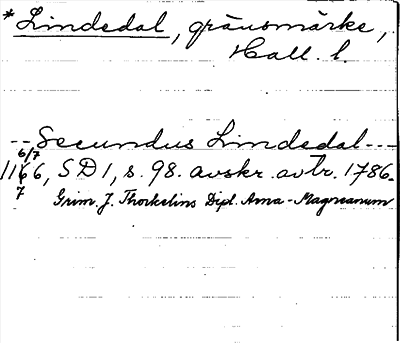 *Lindedal, gränsmärke,
Hall. l.
--Secundus Lindedal---
6/7
1166, SD 1, s. 98. avskr. av tr. 1786.
7
Grim. J. Thorkelins Dipl. Arna-Magnæanum